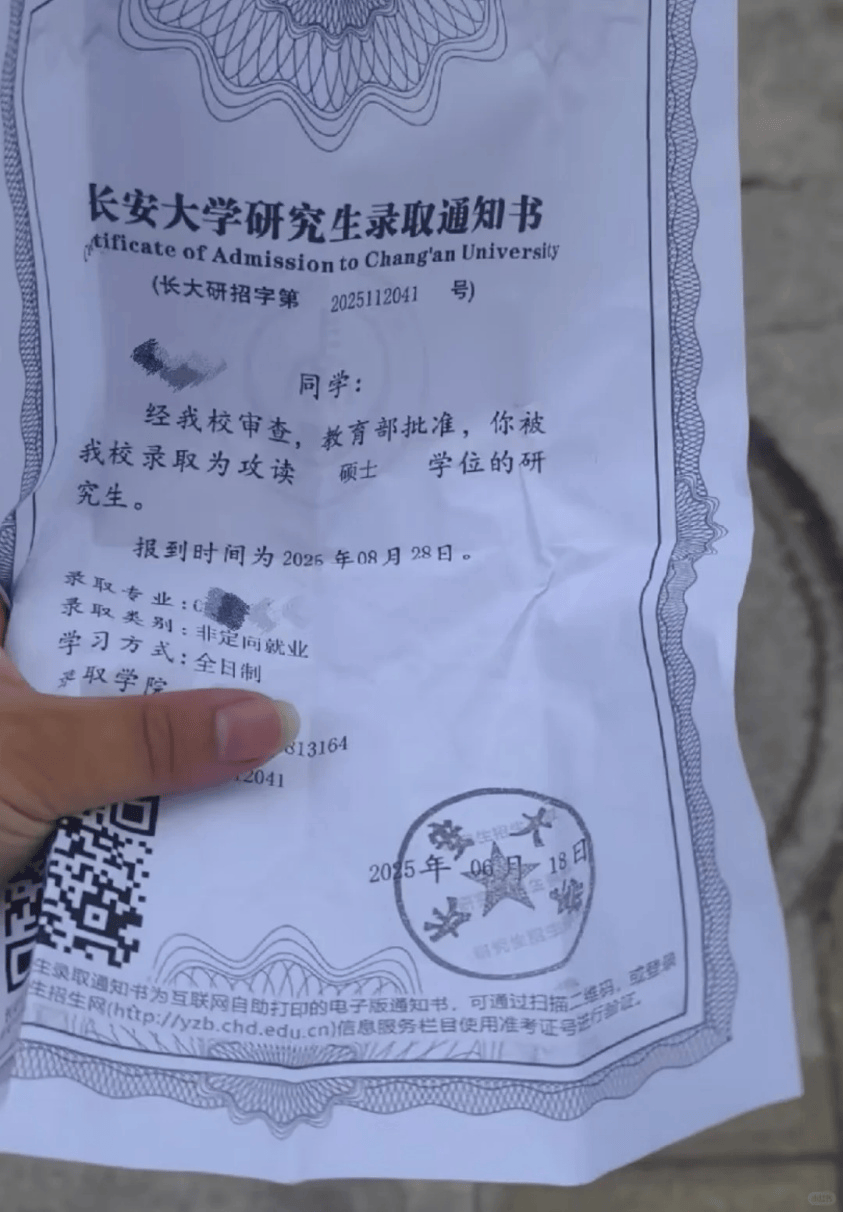 长安大学研究生录取通知书
tificate of Admission to Chang'an University
(长大研招字第 2025112041 号)
同学：
经我校审查，教育部批准，你被
我校录取为攻读 硕士 学位的研
究生。
报到时间为 2025 年 08 月 28 日。
录取专业：0
录取类别：非定向就业
学习方式：全日制
录取学院
813164
12041
2025 年 06 月 18 日
生录取通知书为互联网自助打印的电子版通知书，可通过扫描二维码，或登录
生招生网(http://yzb.chd.edu.cn)信息服务栏目使用准考证号进行验证。